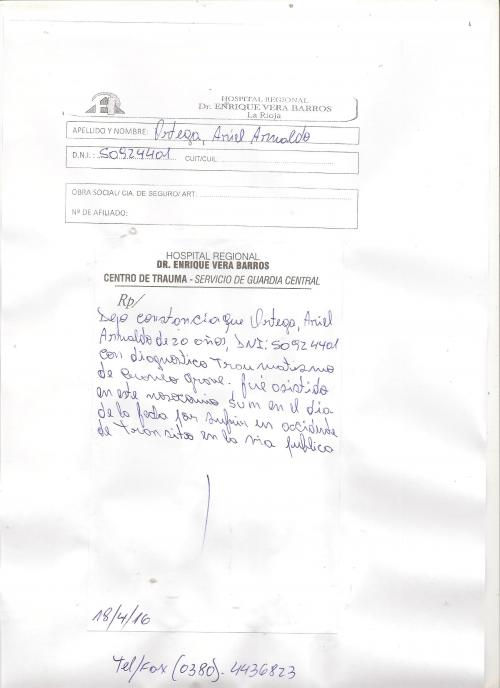 HOSPITAL REGIONAL
Dr. ENRIQUE VERA BARROS
La Rioja
APELLIDO Y NOMBRE: Ortega, Ariel Arnaldo
D.N.I.: 50924401 CUIT/CUIL:
OBRA SOCIAL/ CIA. DE SEGURO/ ART.
Nº DE AFILIADO:
HOSPITAL REGIONAL
DR. ENRIQUE VERA BARROS
CENTRO DE TRAUMA - SERVICIO DE GUARDIA CENTRAL
Rp/
Dejo constancia que Ortega, Ariel
Arnaldo de 20 años, DNI: 50924401
con diagnostico Traumatismo
de Craneo Grave. fué asistido
en este nosocomio en el dia
de la fecha por sufrir un accidente
de transito en la via publica
18/4/16
Tel/Fax (0380). 4436823